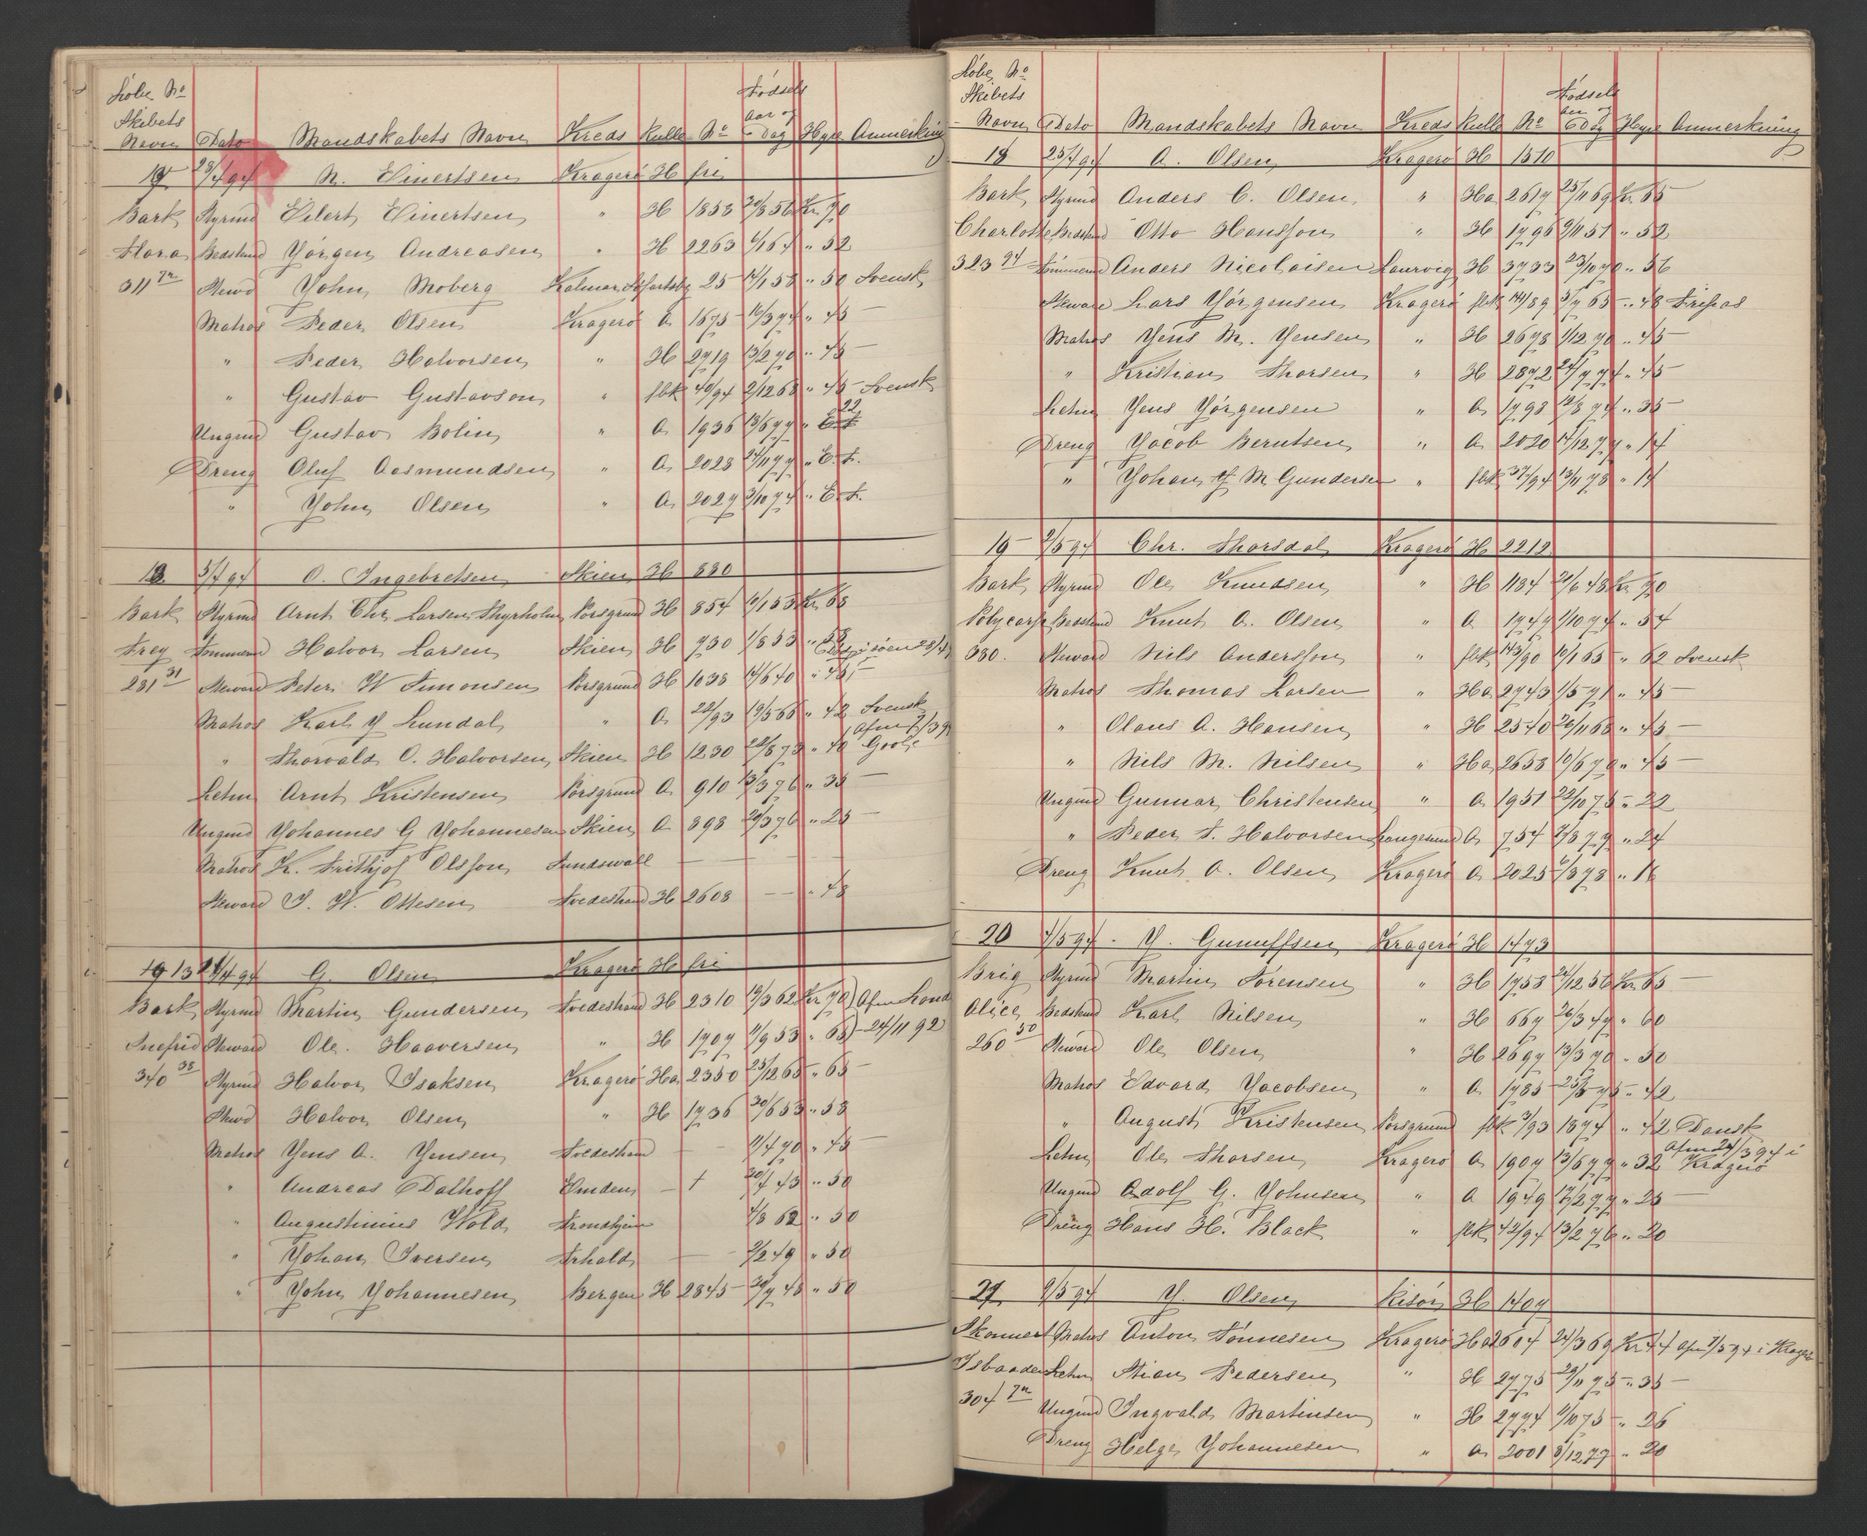 Löbe No
Skibets
Navn Dato Mandskabets Navn Kreds Rulle No Födsels Aar og Dag Hyre Anmerkning
23/4 94 N. Einertsen Kragerö H fri
Bark Styrmd Eilert Einertsen " H 1853 Kr. 70
Flora Bedstmd Jörgen Andreasen " H 2263 " 52
311 Stewd John Moberg Kalmar 25 14/1 53 " 50 Svensk
Matros Peder Olsen Kragerö A 1675 16/3 74 " 45 —
" Peder Halvorsen " H 2719 13/2 70 " 45 —
" Gustav Gustavson " fbk 40/94 2/12 68 " 45 Svensk
Ungmd Gustav Bolin " A 1936 13/6 77 " 22
Dreng Oluf Aasmundsen " A 2023 24/11 77 " E. F.
" John Olsen " A 2027 3/10 74 " E. F.
13 O. Ingebretsen Skien H 830
Bark Styrmd Arnt Chr. Larsen Porsgrund H 854 Kr. 68
Frey Tömmermd Halvor Larsen Skien H 730 1/8 53
281 31 Steward Peter W Simonsen Porsgrund H 1038 14/6 40 " 45
Matros Karl J Lundal " A 22/93 19/5 66 " 42 Svensk
" Thorvald O. Halvorsen Skien H 1230 22/8 73 " 40 Goole
Letm Arnt Kristensen Porsgrund A 910 13/3 76 " 35 —
Ungmd Johannes G Johannesen Skien A 898 29/3 76 " 25 —
Matros K. Frithjof Olsson Sundswall — — —
Steward J. W. Ottesen Tvedestrand H 2608 — " 48
G. Olsen Kragerö H fri
Bark Styrmd Martin Gundersen Tvedestrand H 2310 19/3 62 Kr 70
Snefrid Steward Ole Haaversen " H 1707 11/9 53 " 65 — 24/11 92
340 38 Styrmd Halvor Isaksen Kragerö Ha 2350 25/12 65 " 65 —
Stewd Halvor Olsen " H 1736 30/6 53 " 58
Matros Jens A. Jensen Tvedestrand — 11/4 70 " 45 —
" Andreas Dalhoff Emden — + 30/4 43 " 50
" Augustinius Wold Trondhjem 4/8 62 " 50
" Johan Iversen — 2/2 49 " 50
" John Johannesen Bergen H 2845 — 30/9 48 " 50
Löbe No
Skibets
Navn Dato Mandskabets Navn Kreds Rulle No Födsels aar og Dag Hyre Anmerkning
18 25/4 94 A. Olsen Kragerö H 1510
Bark Styrmd Anders C. Olsen " Ha 2617 25/11 69 Kr. 65
Charlotte Bedstmd Otto Hansson " H 1796 9/11 51 " 52
323 94 Tömmermd Anders Nicolaisen Laurvig H 3733 23/10 70 " 56
Steward Lars Jörgensen Kragerö fbk 141/89 5/7 65 " 48 Fripas
Matros Jens M. Jensen " H 2678 1/12 70 " 45 —
" Kristian Thorsen " H 2872 24/7 74 " 45 —
Letm Jens Jörgensen " A 1793 12/8 74 " 35 —
Dreng Jacob Berntsen " A 2020 14/12 77 " 14
" Johan M Gundersen " fbk 37/94 13/11 78 " 14
19 2/5 94 Chr. Thorsdal Kragerö H 2212
Bark Styrmd Ole Knudsen " H 1134 21/6 48 Kr. 70
Polycarp Bedstmd Knut A. Olsen " A 1747 1/10 74 " 54
330. Steward Nils Andersson " fbk 143/90 10/1 65 " 62 Svensk
Matros Thomas Larsen " Ha 2743 1/5 71 " 45 —
" Olaus A. Hansen " H 2540 26/11 68 " 45 —
" Nils M. Nilsen " Ha 2653 10/6 70 " 45 —
Ungmd Gunnar Christensen " A 1951 22/10 75 " 22
" Peder T. Halvorsen Langesund A 754 7/8 77 " 24
Dreng Knut A. Olsen Kragerö A 2025 6/8 78 " 16
20 4/5 94 J. Gunuffsen Kragerö H 1473
Brig Styrmd Martin Sörensen " H 1753 24/12 56 Kr. 65
Alice Bedstmd Karl Nilsen " H 667 26/3 47 " 60
260 50 Steward Ole Olsen " H 2697 13/3 70 " 50
Matros Edvard Jacobsen " A 1785 25/5 75 " 42
" August Kristensen Porsgrund fbk 3/93 1874 " 42 Dansk
Letm Ole Thorsen Kragerö A 1907 13/6 77 " 32 Afm 24/3 94 i Kragerö
Ungmd Adolf G. Johnsen " A 1949 17/2 77 " 25 —
Dreng Hans H. Black " fbk 42/94 13/2 76 " 20
21 9/5 94 J. Olsen Risör H 1407
Skonnert Matros Anton Tönnesen Kragerö Ha 2604 24/3 69 Kr 44 Afm 7/5 94 i Kragerö
Isbaaden Letm Stian Pedersen " H 2775 29/11 75 " 35 —
304 Ungmd Ingvald Martinsen " H 2774 11/10 75 " 26
Dreng Helge Johannesen " A 2001 8/12 77 " 20